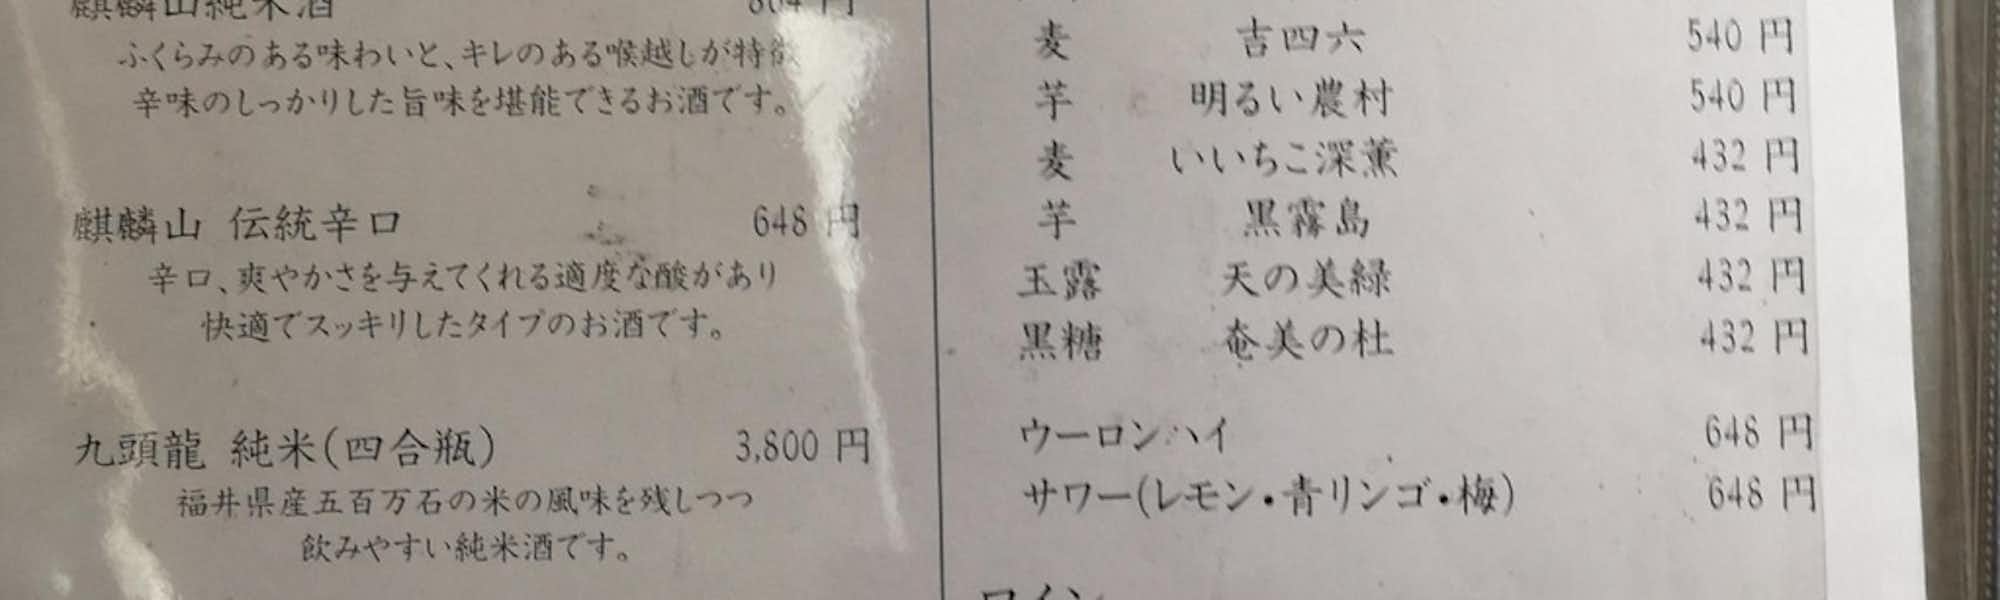 麒麟山純米酒 864 円
ふくらみのある味わいと、キレのある喉越しが特徴
辛味のしっかりした旨味を堪能できるお酒です。
麒麟山 伝統辛口 648 円
辛口、爽やかさを与えてくれる適度な酸があり
快適でスッキリしたタイプのお酒です。
九頭龍 純米(四合瓶) 3,800 円
福井県産五百万石の米の風味を残しつつ
飲みやすい純米酒です。
麦 吉四六 540 円
芋 明るい農村 540 円
麦 いいちこ深薫 432 円
芋 黒霧島 432 円
玉露 天の美緑 432 円
黒糖 奄美の杜 432 円
ウーロンハイ 648 円
サワー(レモン・青リンゴ・梅) 648 円
ワイン